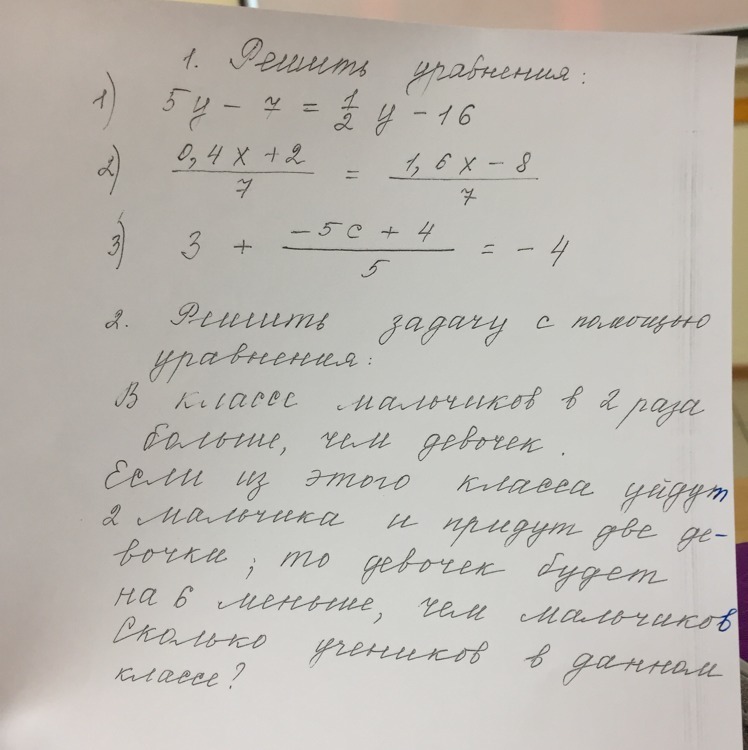 1. Решить уравнения:
1) 5y - 7 = 1/2 y - 16
2) (0,4x + 2)/7 = (1,6x - 8)/7
3) 3 + (-5c + 4)/5 = -4
2. Решить задачу с помощью
уравнения:
В классе мальчиков в 2 раза
больше, чем девочек.
Если из этого класса уйдут
2 мальчика и придут две де-
вочки, то девочек будет
на 6 меньше, чем мальчиков
Сколько учеников в данном
классе?